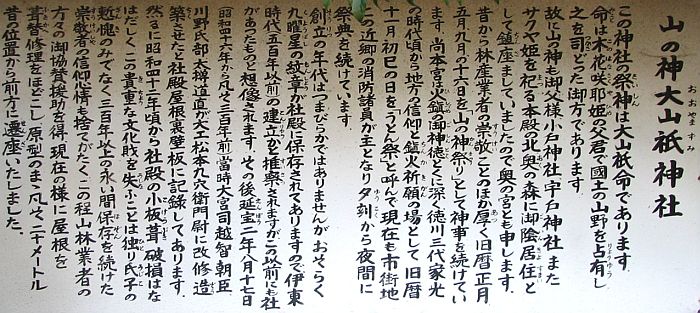 山の神大山祇神社
この神社の祭神は大山祇命であります。
命は木花咲耶姫の父君で國土の山野を占有し
之を司どった御方であります。
故に山の神も御父様小戸神社宇戸神社また
サクヤ姫を祀る本殿の北奥の森に御陰居住と
して鎮座ましていましたので奥の宮とも申します。
昔から林産業者の崇敬ことのほか厚く旧暦正月
五月九月の十六日を(山の神祭り)として神事を続けてい
ます。尚本宮は火鎮の御神徳とくに深く徳川三代家光
の時代頃から地方の信仰と鎮火祈願の場として旧暦
十一月初巳の日を(うと祭)と呼んで現在も市街地
この近郷の消防諸員が主となり夕刻から夜間に
祭典を続けています。
創立の年代はつまびらかではありませんがおそらく
九曜星の紋章が社殿に保存されてありますので伊東
時代五百年以前の建立かと推察されますがこの以前にも社
があったものと想像されます。その後延宝二年八月十七日
昭和四十六年から凡そ三百年前当時大宮司越智朝臣
川野氏部太輔道直が大工松本九六衛門尉に改修造
築させたと社殿屋根裏壁板に記録してあります。
然るに昭和四十三年頃から社殿の小板葺破損はな
はだしくこの貴重な文化財を失ふことは独り氏子の
慙愧のみでなく三百年以上の永い間保存を続けた
崇敬者の信仰心情も捨てがたく、この程山林業者の
方々の御協賛援助を得、現在の様に屋根を
葺替修理をほどこし原型のまゝ凡そ二十メートル
昔の位置から前方に遷座いたしました。